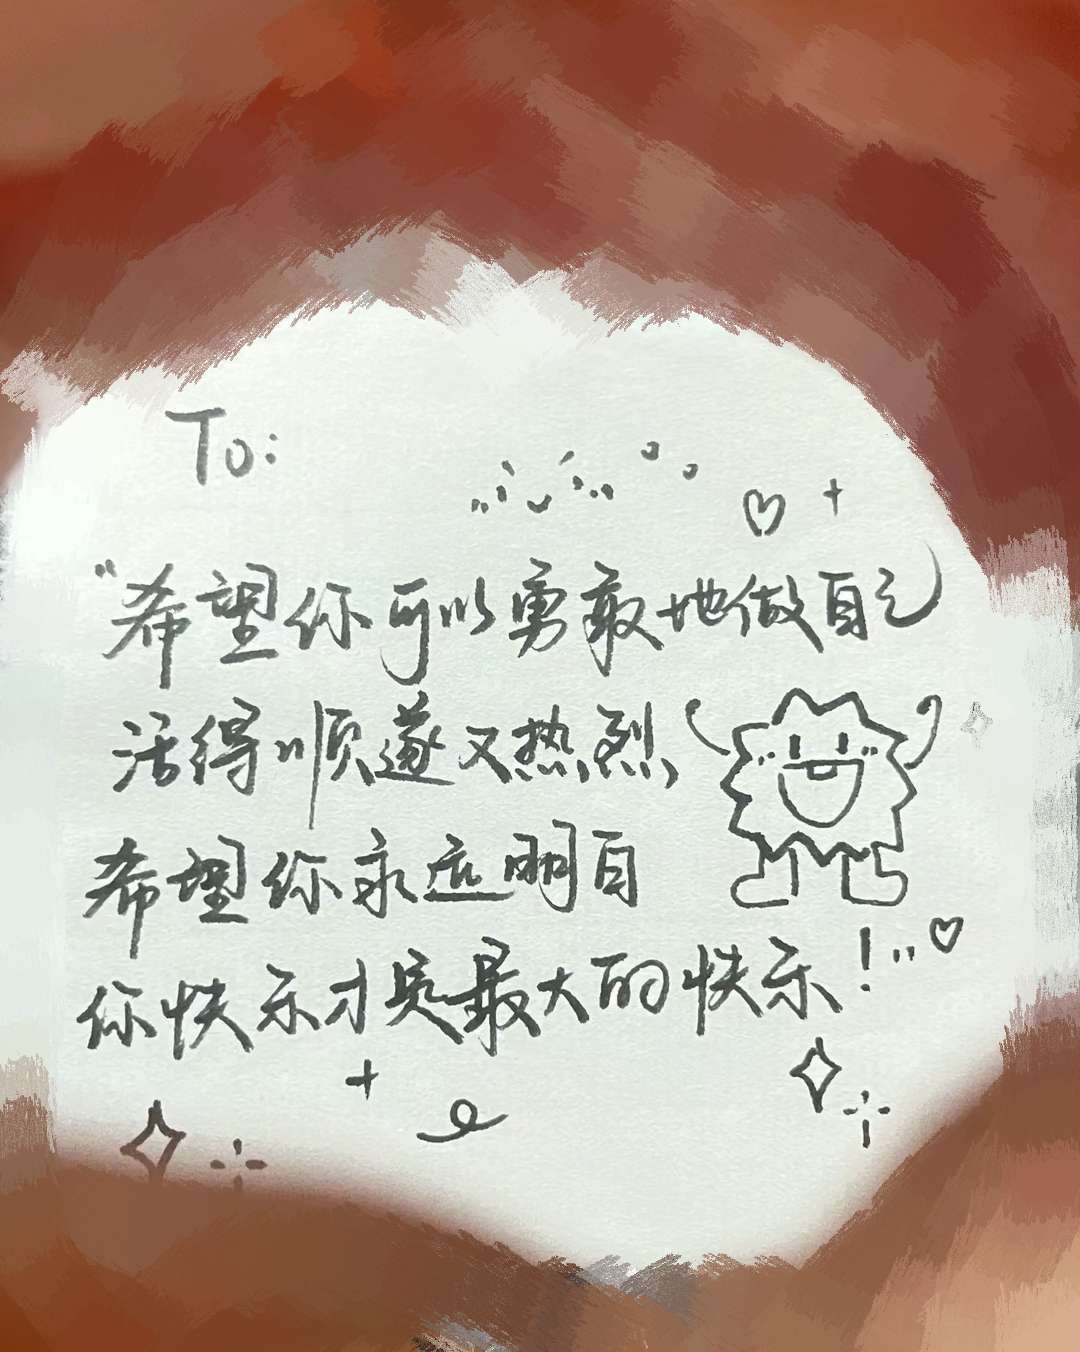 To:
"希望你可以勇敢地做自己
活得顺遂又热烈,
希望你永远明白
你快乐才是最大的快乐!"